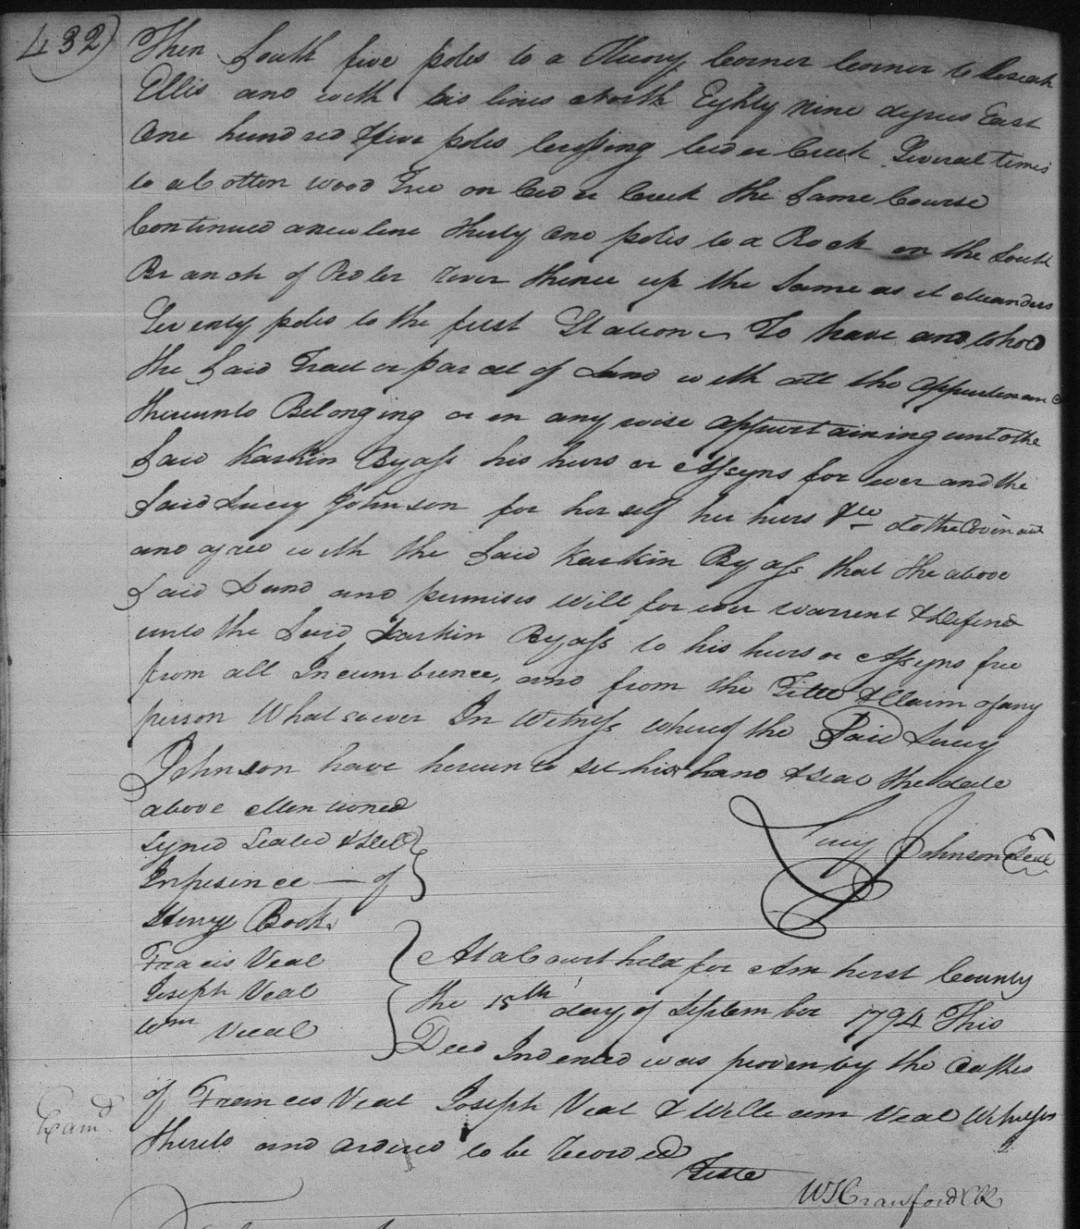 432)
Then South five poles to a Hicory Corner Corner to
Ellis and with his lines North Eighty nine degrees East
One hundred & five poles Crossing Ceder Creek Several times
to a Cotten wood Tree on Ceder Creek the Same Course
Continued a new line thirty one poles to a Rock on the South
Branch of Pedler river thence up the Same as it Meanders
Seventy poles to the first Station To have and to hold
the Said Tract or parcel of Land with all the Appurtenanc
thereunto Belonging or in any wise appurtaining unto the
Said Larkin Byass his heirs or Assigns for ever and the
Said Lucy Johnson for her self her heirs &c doth Covinant
and agree with the Said Larkin Byass that the above
Said Land and premises will for ever warrent & defend
unto the Said Larkin Byass to his heirs or Assigns free
from all Incumbrence, and from the Title & Claim of any
person Whatsoever In Witness whereof the Said Lucy
Johnson have hereunto set his hand & seal the date
above Mentioned
Lucy Johnson Seal
Signed Sealed & Deld
In presence of
Henry
Francis Veal
Joseph Veal
Wm Veal
At a Court held for Amherst County
the 15th day of September 1794 This
Deed Indented was proven by the Oathes
of Frances Veal Joseph Veal & William Veal Witnesses
Examd
thereto and ordered to be Recorded
Teste
WS Crawford Clk